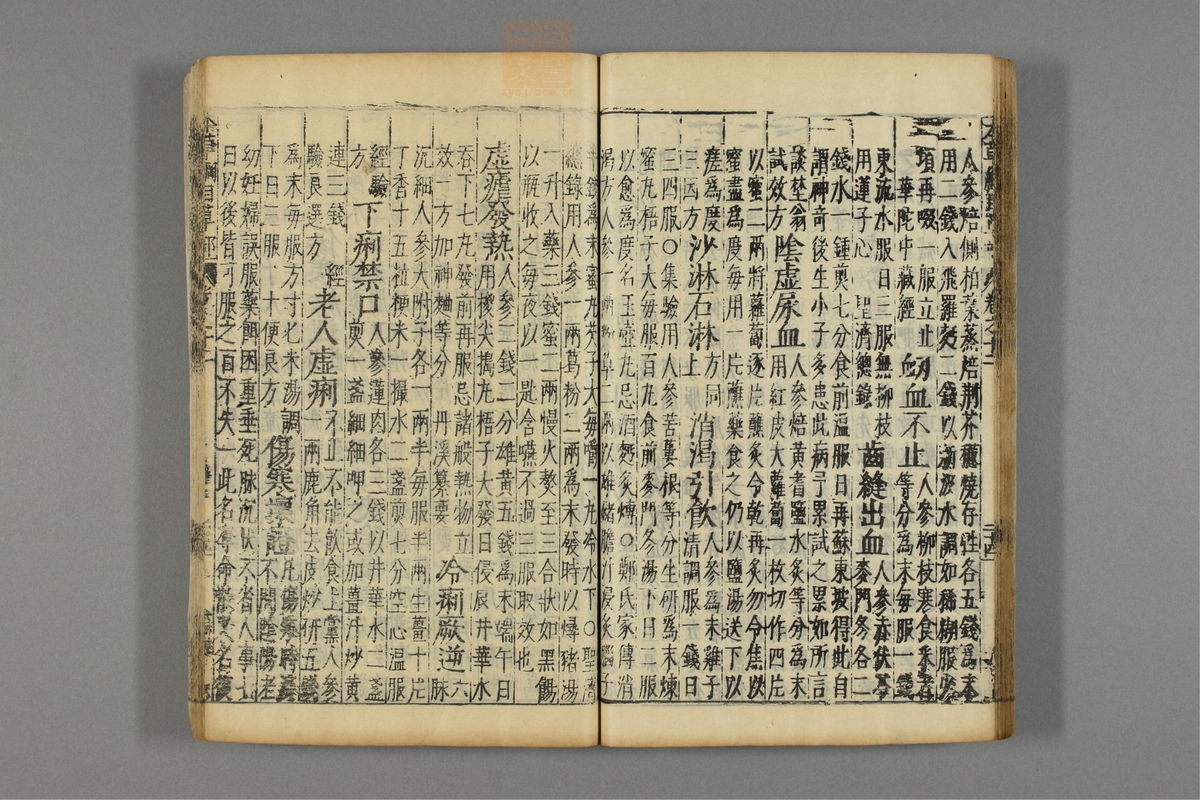 人參焙側柏葉蒸焙荆芥穗燒存性各五錢為末
用二錢入飛羅麪二錢以新汲水調如稀糊服少
頃再啜一服立止華陀中藏經衂血不止人參柳枝寒食采者等分為末每服一錢
東流水服日三服無柳枝用蓮子心聖濟總錄齒縫出血人參赤茯苓麥門冬各二
錢水一鍾煎七分食前溫服日再蘇東坡得此自
謂神奇後生小子多患此病予累試之累如所言
談埜翁試效方陰虛尿血人參焙黃耆鹽水炙等分為末用紅皮大蘿蔔一枚切作四片
以蜜二兩將蘿蔔逐片蘸炙令乾再炙勿令焦以
蜜盡為度每用一片蘸藥食之仍以鹽湯送下以
瘥為度三因方沙淋石淋方同上消渴引飲人參為末雞子清調服一錢日
三四服○集驗用人參苦蔞根等分生研為末煉
蜜丸梧子大每服百丸食前麥門冬湯下日二服
以愈為度名玉壺丸忌酒麪炙煿○鄭氏家傳消
渴方人參一兩二兩以雄猪膽汁浸炙腦子
半錢為末蜜丸芡子大每嚼一丸冷水下○聖濟
總錄用人參一兩葛粉二兩為末發時以燖豬湯
一升入藥三錢蜜二兩慢火熬至三合狀如黑餳
以瓶收之每夜以一匙含嚥不過三服取效也
虛瘧發熱人參二錢二分雄黃五錢為末端午日用椶尖搗丸梧子大發日侵辰井華水
吞下七丸發前再服忌諸般熱物立效一方加神麯等分丹溪纂要冷痢厥逆六脉
沉細人參大附子各一兩半每服半兩生薑十片
丁香十五粒粳米一撮水二盞煎七分空心溫服
經驗方下痢禁口人參蓮肉各三錢以井華水二盞煎一盞細細呷之或加薑汁炒黃
連三錢經驗良方老人虛痢不止不能飲食上黨人參一兩鹿角去皮炒研五錢
為末每服方寸匕米湯調下日三服十便良方傷寒壞證凡傷寒時疫不問陰陽老
幼妊婦誤服藥餌困重垂死脉沉伏不省人事七
日以後皆可服之百不失一此名奪命